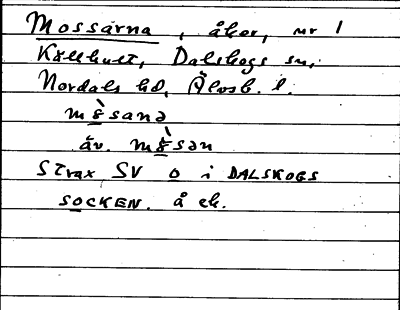 Mossarna, åker, nr 1
Källhult, Dalskogs sn,
Nordals hd, Älvsb. l.
äv.
Strax SV o i DALSKOGS
SOCKEN. å ek.